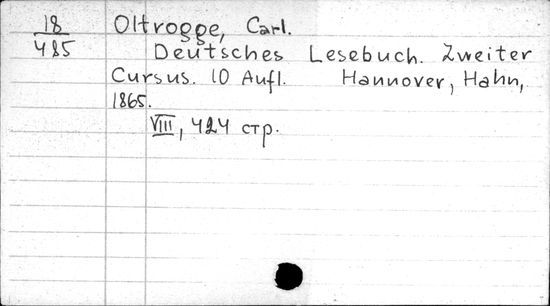 18 Oltrogge, Carl.
485 Deutsches Lesebuch. Zweiter
Cursus. 10 Aufl. Hannover, Hahn,
1865.
VIII, 424 стр.